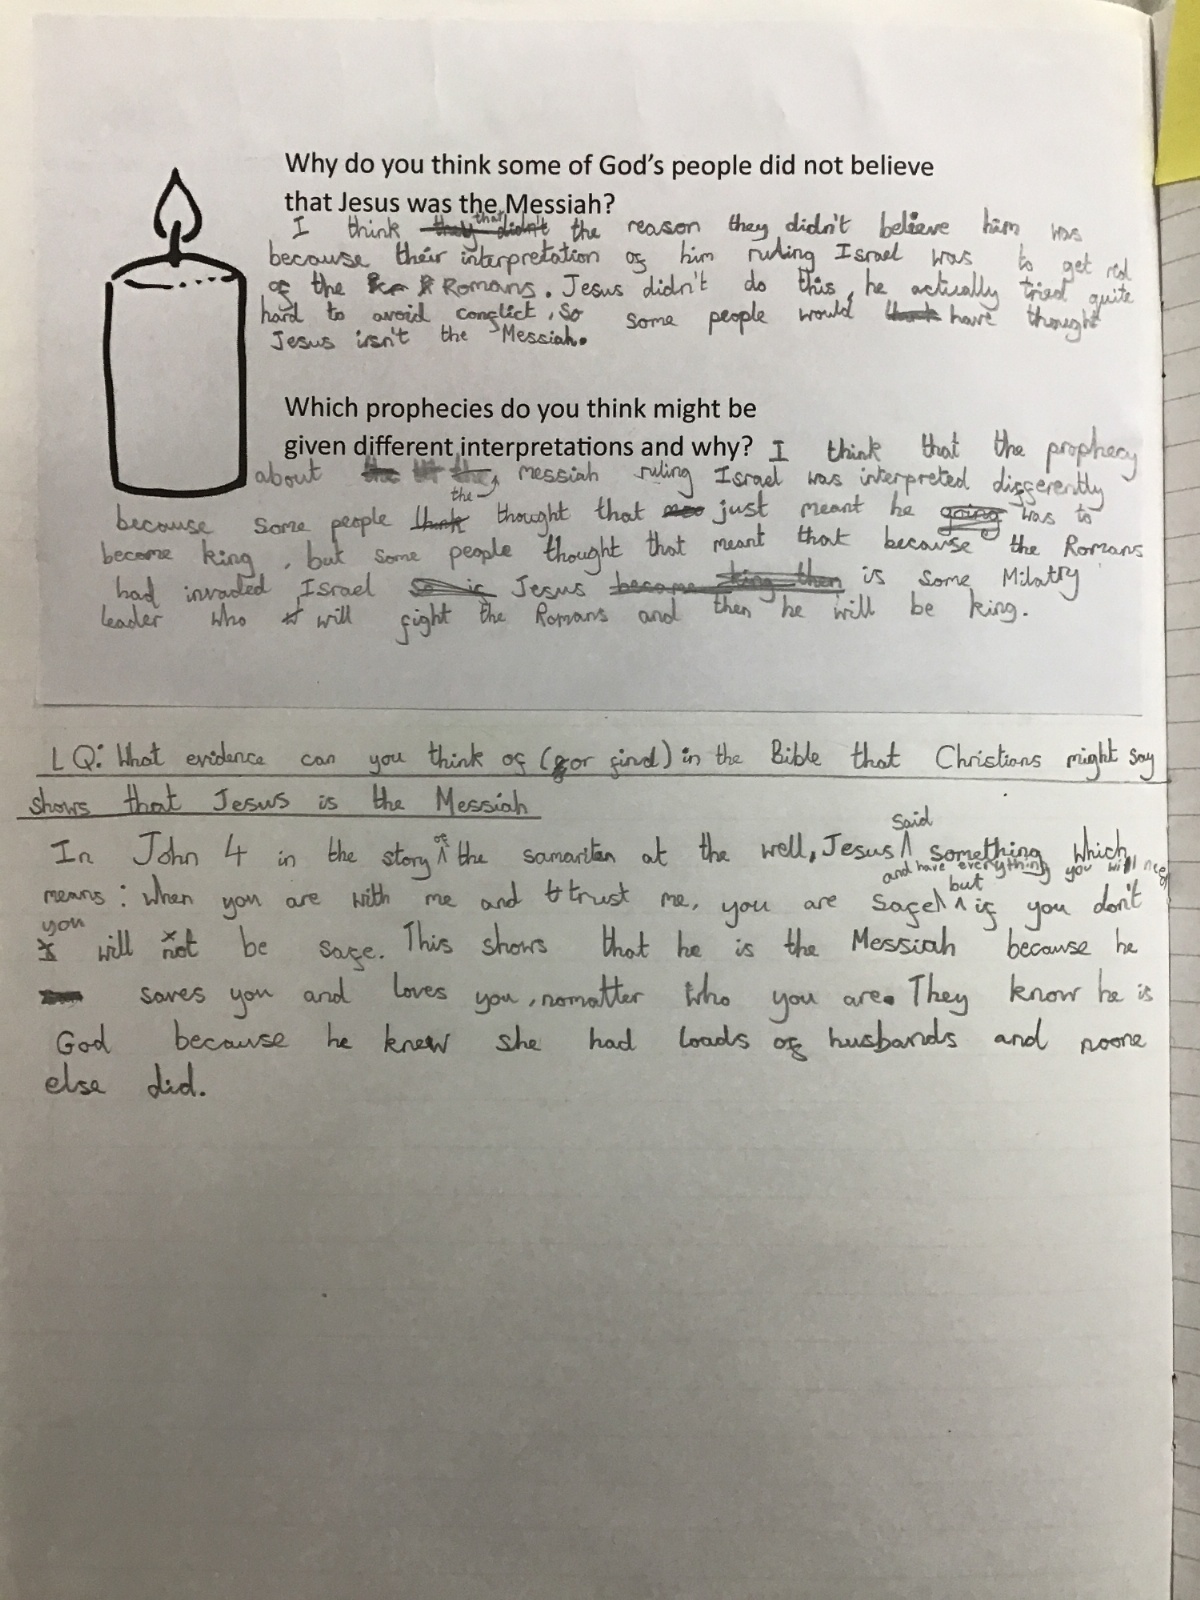 Why do you think some of God's people did not believe
that Jesus was the Messiah?
I think that the reason they didn't believe him was
because their interpretation of him ruling Israel was to get rid
of the Romans. Jesus didn't do this, he actually tried quite
hard to avoid conflict, so some people would have thought
Jesus isn't the Messiah.
Which prophecies do you think might be
given different interpretations and why? I think that the prophecy
about the messiah ruling Israel was interpreted differently
because some people thought that just meant he was to
become king, but some people thought that meant that because the Romans
had invaded Israel Jesus is some Milatry
leader who will fight the Romans and then he will be king.
LQ: What evidence can you think of (or find) in the Bible that Christians might say
shows that Jesus is the Messiah
In John 4 in the story of the samaritan at the well, Jesus said something which
means: when you are with me and trust me, you are safe and have everything you will need but if you don't
you will not be safe. This shows that he is the Messiah because he
saves you and loves you, nomatter who you are. They know he is
God because he knew she had loads of husbands and noone
else did.